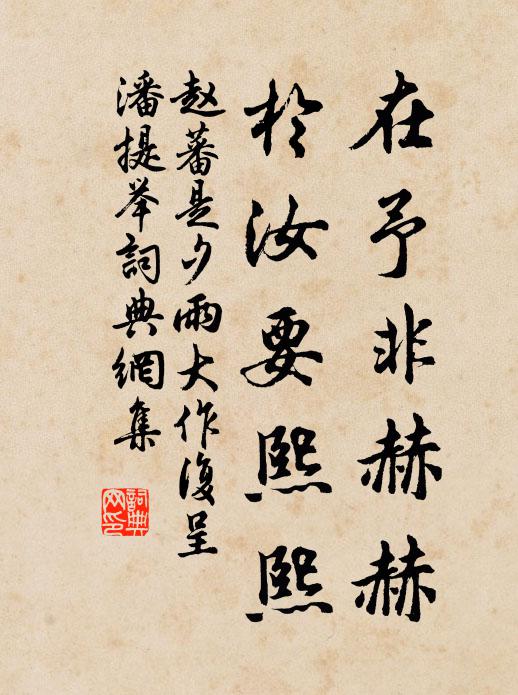 在予非赫赫
於汝要熙熙
赵蕃是夕雨大作復呈
潘提举詞典網集
詞典网印